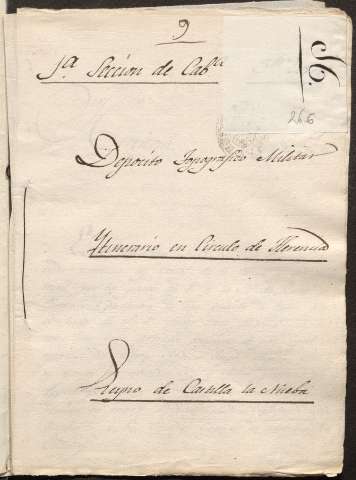 9
S6.
1ª Seccion de Cabª
266
Deposito Topografico Militar
Itinerario en Circulo de Herencia
Reyno de Castilla la Nueba